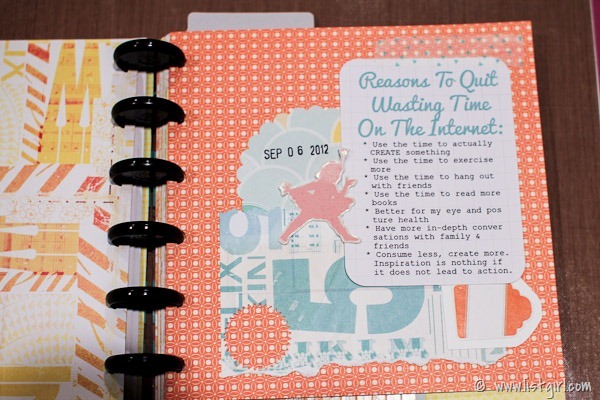 SEP 06 2012
Reasons To Quit
Wasting Time
On The Internet:
* Use the time to actually
CREATE something
* Use the time to exercise
more
* Use the time to hang out
with friends
* Use the time to read more
books
* Better for my eye and pos
ture health
* Have more in-depth conver
sations with family &
friends
* Consume less, create more.
Inspiration is nothing if
it does not lead to action.
5
© www.listgirl.com